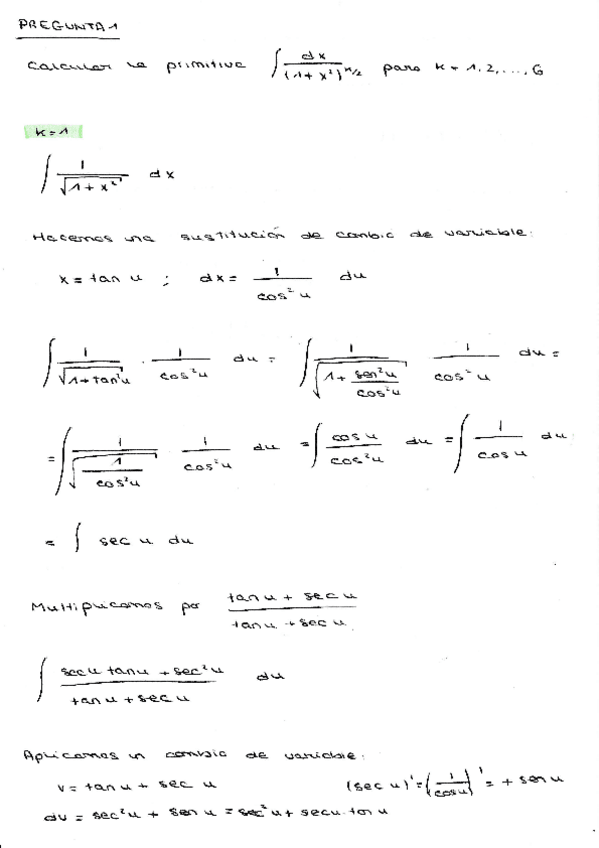 PREGUNTA 1
Calcular la primitiva ∫ dx / (1+x²)^(k/2) para k = 1, 2, ..., 6
k = 1
∫ 1/√(1+x²) dx
Hacemos una sustitución de cambio de variable:
x = tan u ; dx = 1/cos²u du
∫ 1/√(1+tan²u) · 1/cos²u du = ∫ 1/√(1 + sen²u/cos²u) 1/cos²u du =
= ∫ 1/√(1/cos²u) · 1/cos²u du = ∫ cos u/cos²u du = ∫ 1/cos u du
= ∫ sec u du
Multiplicamos por (tan u + sec u)/(tan u + sec u)
∫ (sec u tan u + sec²u)/(tan u + sec u) du
Aplicamos un cambio de variable:
v = tan u + sec u (sec u)' = (1/cos u)' = + sen u
dv = sec²u + sen u = sec²u + sec u · tan u